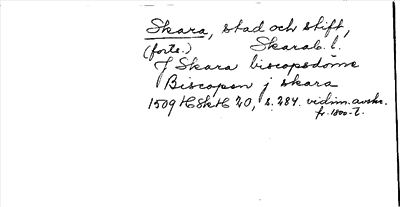 Skara, stad och stift,
(forts.) Skarab. l.
J Skara biscopsdöme
Biscopen j skara
1509 HSkH 20, s. 284. vidim. avskr.
fr. 1800-t.